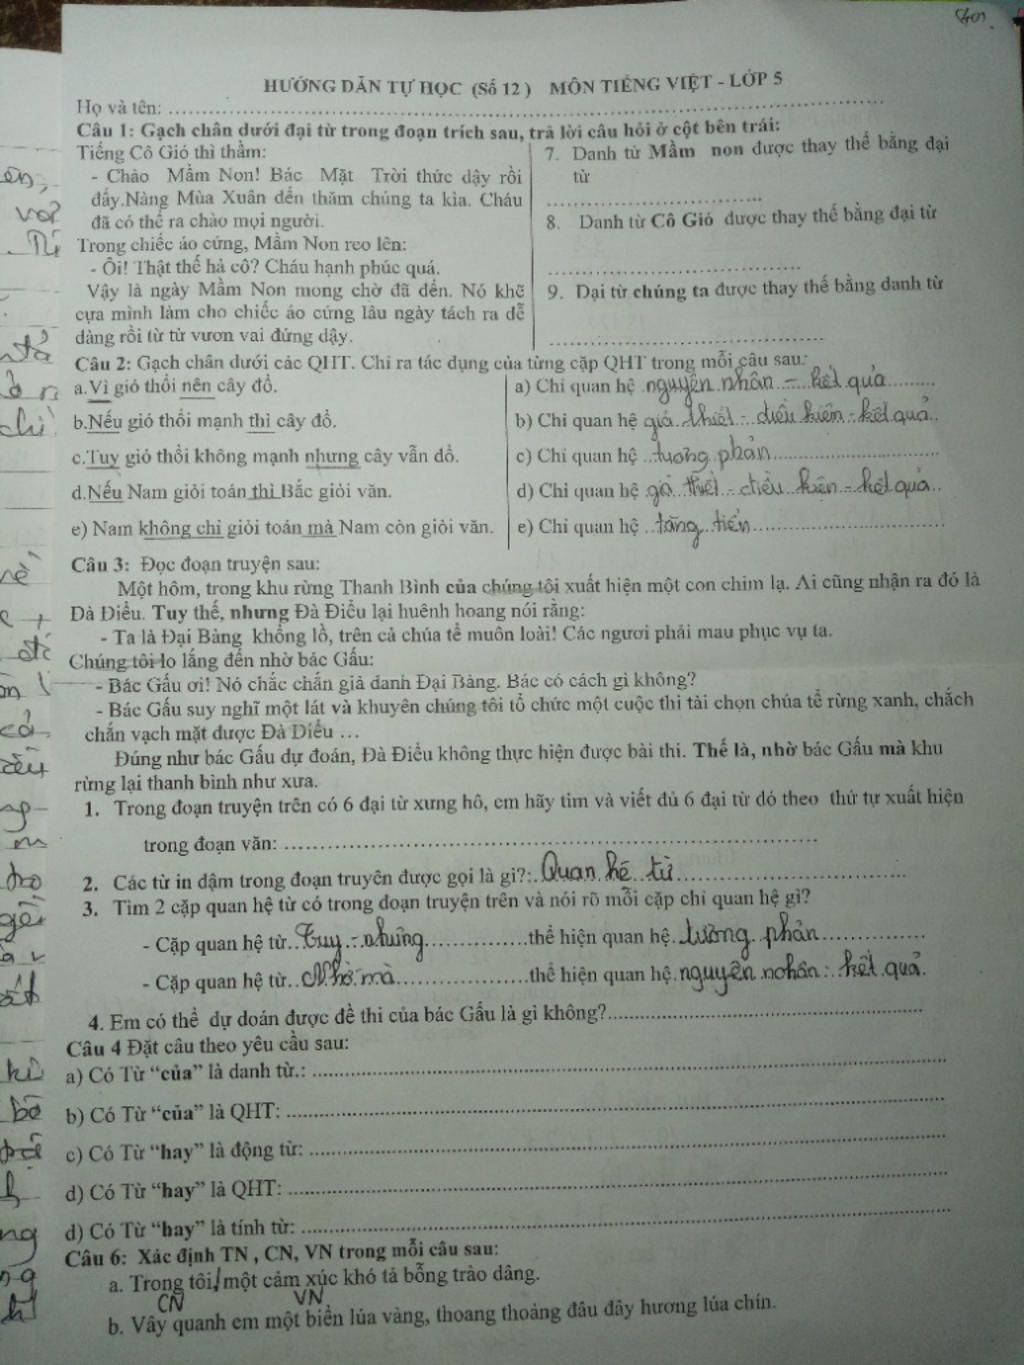 HƯỚNG DẪN TỰ HỌC (Số 12 ) MÔN TIẾNG VIỆT - LỚP 5
Họ và tên: ........
Câu 1: Gạch chân dưới đại từ trong đoạn trích sau, trả lời câu hỏi ở cột bên trái:
Tiếng Cô Gió thì thầm:
- Chào Mầm Non! Bác Mặt Trời thức dậy rồi
đấy.Nàng Mùa Xuân đến thăm chúng ta kìa. Cháu
đã có thể ra chào mọi người.
Trong chiếc áo cứng, Mầm Non reo lên:
- Ôi! Thật thế hả cô? Cháu hạnh phúc quá.
Vậy là ngày Mầm Non mong chờ đã đến. Nó khẽ
cựa mình làm cho chiếc áo cứng lâu ngày tách ra dễ
dàng rồi từ từ vươn vai đứng dậy.
7. Danh từ Mầm non được thay thế bằng đại
từ
........
8. Danh từ Cô Gió được thay thế bằng đại từ
........
9. Dại từ chúng ta được thay thế bằng danh từ
........
Câu 2: Gạch chân dưới các QHT. Chỉ ra tác dụng của từng cặp QHT trong mỗi câu sau:
a.Vì gió thổi nên cây đổ.
a) Chỉ quan hệ nguyên nhân - kết quả
b.Nếu gió thổi mạnh thì cây đổ.
b) Chỉ quan hệ giả thiết - điều kiện - kết quả
c.Tuy gió thổi không mạnh nhưng cây vẫn đổ.
c) Chỉ quan hệ tương phản
d.Nếu Nam giỏi toán thì Bắc giỏi văn.
d) Chỉ quan hệ giả thiết - điều kiện - kết quả
e) Nam không chỉ giỏi toán mà Nam còn giỏi văn.
e) Chỉ quan hệ tăng tiến
Câu 3: Đọc đoạn truyện sau:
Một hôm, trong khu rừng Thanh Bình của chúng tôi xuất hiện một con chim lạ. Ai cũng nhận ra đó là
Đà Điểu. Tuy thế, nhưng Đà Điểu lại huênh hoang nói rằng:
- Ta là Đại Bàng khổng lồ, trên cả chúa tể muôn loài! Các ngươi phải mau phục vụ ta.
Chúng tôi lo lắng đến nhờ bác Gấu:
- Bác Gấu ơi! Nó chắc chắn giả danh Đại Bàng. Bác có cách gì không?
- Bác Gấu suy nghĩ một lát và khuyên chúng tôi tổ chức một cuộc thi tài chọn chúa tể rừng xanh, chắch
chắn vạch mặt được Đà Điểu ...
Đúng như bác Gấu dự đoán, Đà Điểu không thực hiện được bài thi. Thế là, nhờ bác Gấu mà khu
rừng lại thanh bình như xưa.
1. Trong đoạn truyện trên có 6 đại từ xưng hô, em hãy tìm và viết đủ 6 đại từ đó theo thứ tự xuất hiện
trong đoạn văn: ........
2. Các từ in đậm trong đoạn truyên được gọi là gì?: Quan hệ từ
3. Tìm 2 cặp quan hệ từ có trong đoạn truyện trên và nói rõ mỗi cặp chỉ quan hệ gì?
- Cặp quan hệ từ Tuy - nhưng thể hiện quan hệ tương phản
- Cặp quan hệ từ Nhờ - mà thể hiện quan hệ nguyên nhân - kết quả
4. Em có thể dự đoán được đề thi của bác Gấu là gì không?........
Câu 4 Đặt câu theo yêu cầu sau:
a) Có Từ “của” là danh từ.: ........
b) Có Từ “của” là QHT: ........
c) Có Từ “hay” là động từ: ........
d) Có Từ “hay” là QHT: ........
d) Có Từ “hay” là tính từ: ........
Câu 6: Xác định TN , CN, VN trong mỗi câu sau:
a. Trong tôi/ một cảm xúc khó tả bỗng trào dâng.
CN VN
b. Vây quanh em một biển lúa vàng, thoang thoảng đâu đây hương lúa chín.